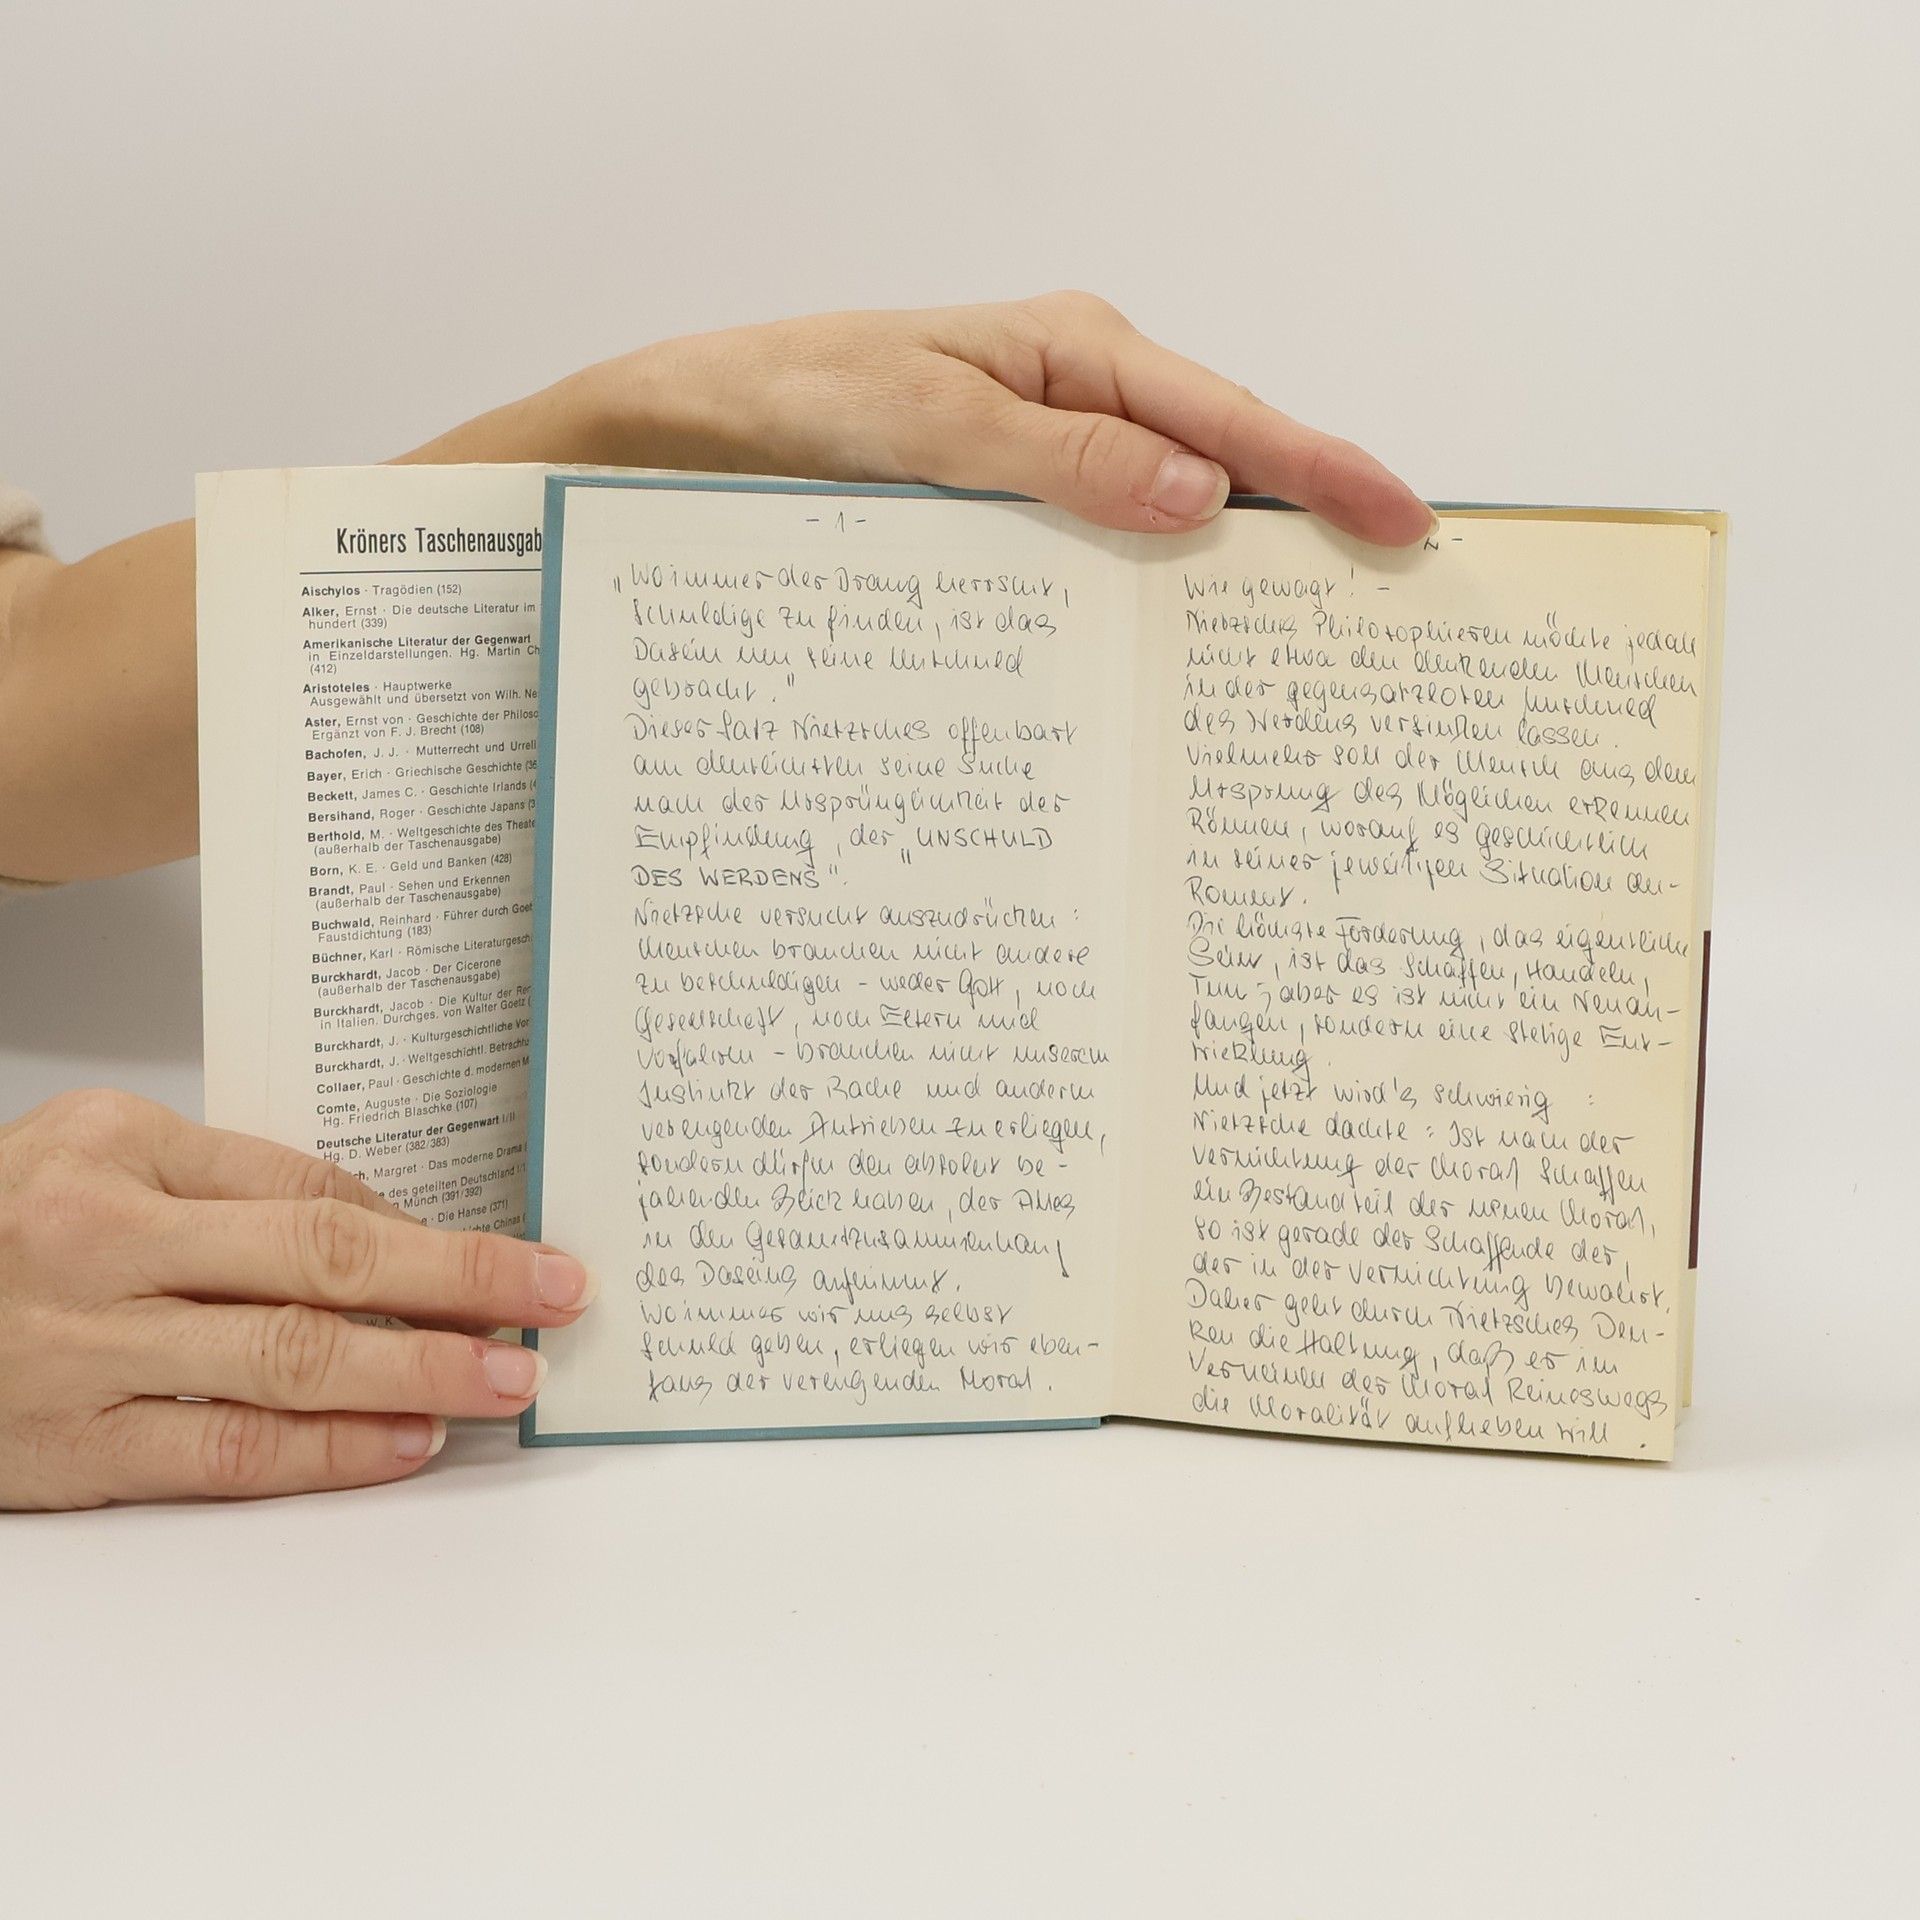 Kröners Taschenausgab
Aischylos · Tragödien (152)
Alker, Ernst · Die deutsche Literatur im
hundert (339)
Amerikanische Literatur der Gegenwart
in Einzeldarstellungen. Hg. Martin Ch
(412)
Aristoteles · Hauptwerke
Ausgewählt und übersetzt von Wilh. Ne
Aster, Ernst von · Geschichte der Philoso
Ergänzt von F. J. Brecht (108)
Bachofen, J. J. · Mutterrecht und Urreli
Bayer, Erich · Griechische Geschichte (36
Beckett, James C. · Geschichte Irlands (4
Bersihand, Roger · Geschichte Japans (3
Berthold, M. · Weltgeschichte des Theate
(außerhalb der Taschenausgabe)
Born, K. E. · Geld und Banken (428)
Brandt, Paul · Sehen und Erkennen
(außerhalb der Taschenausgabe)
Buchwald, Reinhard · Führer durch Goet
Faustdichtung (183)
Büchner, Karl · Römische Literaturgesch
Burckhardt, Jacob · Der Cicerone
(außerhalb der Taschenausgabe)
Burckhardt, Jacob · Die Kultur der Ren
in Italien. Durchges. von Walter Goetz (
Burckhardt, J. · Kulturgeschichtliche Vor
Burckhardt, J. · Weltgeschichtl. Betrachtu
Collaer, Paul · Geschichte d. modernen M
Comte, Auguste · Die Soziologie
Hg. Friedrich Blaschke (107)
Deutsche Literatur der Gegenwart I/II
Hg. D. Weber (382/383)
ch, Margret · Das moderne Drama
e des geteilten Deutschland I/1
n Münch (391/392)
e · Die Hanse (371)
chte Chinas (
W. K
- 1 -
„Wo immer der Drang herrscht,
Schuldige zu finden, ist das
Dasein um seine Unschuld
gebracht."
Dieser Satz Nietzsches offenbart
am deutlichsten seine Suche
nach der Ursprünglichkeit der
Empfindung, der „UNSCHULD
DES WERDENS".
Nietzsche versucht auszudrücken:
Menschen brauchen nicht andere
zu beschuldigen - weder Gott, noch
Gesellschaft, noch Eltern und
Vorfahren - brauchen nicht unserem
Instinkt der Rache und anderen
verengenden Antrieben zu erliegen,
sondern dürfen den absolut be-
jahenden Blick haben, der Alles
in den Gesamtzusammenhang
des Daseins aufnimmt.
Wo immer wir uns selbst
Schuld geben, erliegen wir eben-
falls der verengenden Moral.
2 -
Wie gewagt! -
Nietzsches Philosophieren möchte jedoch
nicht etwa den denkenden Menschen
in der gegensatzlosen Unschuld
des Werdens versinken lassen.
Vielmehr soll der Mensch aus dem
Ursprung des Möglichen erkennen
können, worauf es geschichtlich
in seiner jeweiligen Situation an-
kommt.
Die höchste Forderung, das eigentliche
Sein, ist das Schaffen, Handeln,
Tun - aber es ist nicht ein Neuan-
fangen, sondern eine stetige Ent-
wicklung.
Und jetzt wird's schwierig:
Nietzsche dachte: Ist nach der
Vernichtung der Moral Schaffen
ein Bestandteil der neuen Moral,
so ist gerade der Schaffende der,
der in der Vernichtung bewahrt.
Daher geht durch Nietzsches Den-
ken die Haltung, daß er im
Verneinen der Moral keineswegs
die Moralität aufheben will.